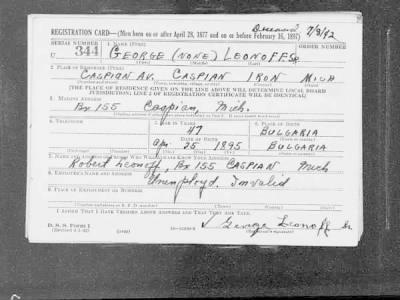 Deceased 7/9/42
REGISTRATION CARD—(Men born on or after April 28, 1877 and on or before February 16, 1897)
SERIAL NUMBER 1. NAME (Print)
U 344 GEORGE (NONE) LEONOFF SR.
(First) (Middle) (Last)
2. PLACE OF RESIDENCE (Print)
CASPIAN AV. CASPIAN IRON MICH
(Number and street) (Town, township, village, or city) (County) (State)
[THE PLACE OF RESIDENCE GIVEN ON THE LINE ABOVE WILL DETERMINE LOCAL BOARD
JURISDICTION; LINE 2 OF REGISTRATION CERTIFICATE WILL BE IDENTICAL]
3. MAILING ADDRESS
Bx 155 Caspian, Mich.
4. TELEPHONE 5. AGE IN YEARS 6. PLACE OF BIRTH
47 BULGARIA
DATE OF BIRTH
Apr. 25 1895 BULGARIA
7. NAME AND ADDRESS OF PERSON WHO WILL ALWAYS KNOW YOUR ADDRESS
Robert Leonoff, Bx 155 CASPIAN Mich
8. EMPLOYER'S NAME AND ADDRESS
Unemployd. Invalid
9. PLACE OF EMPLOYMENT OR BUSINESS
(Number and street or R. F. D. number) (Town) (County) (State)
I AFFIRM THAT I HAVE VERIFIED ABOVE ANSWERS AND THAT THEY ARE TRUE.
D. S. S. Form 1
George Leonoff Sr.
(Registrant's signature)